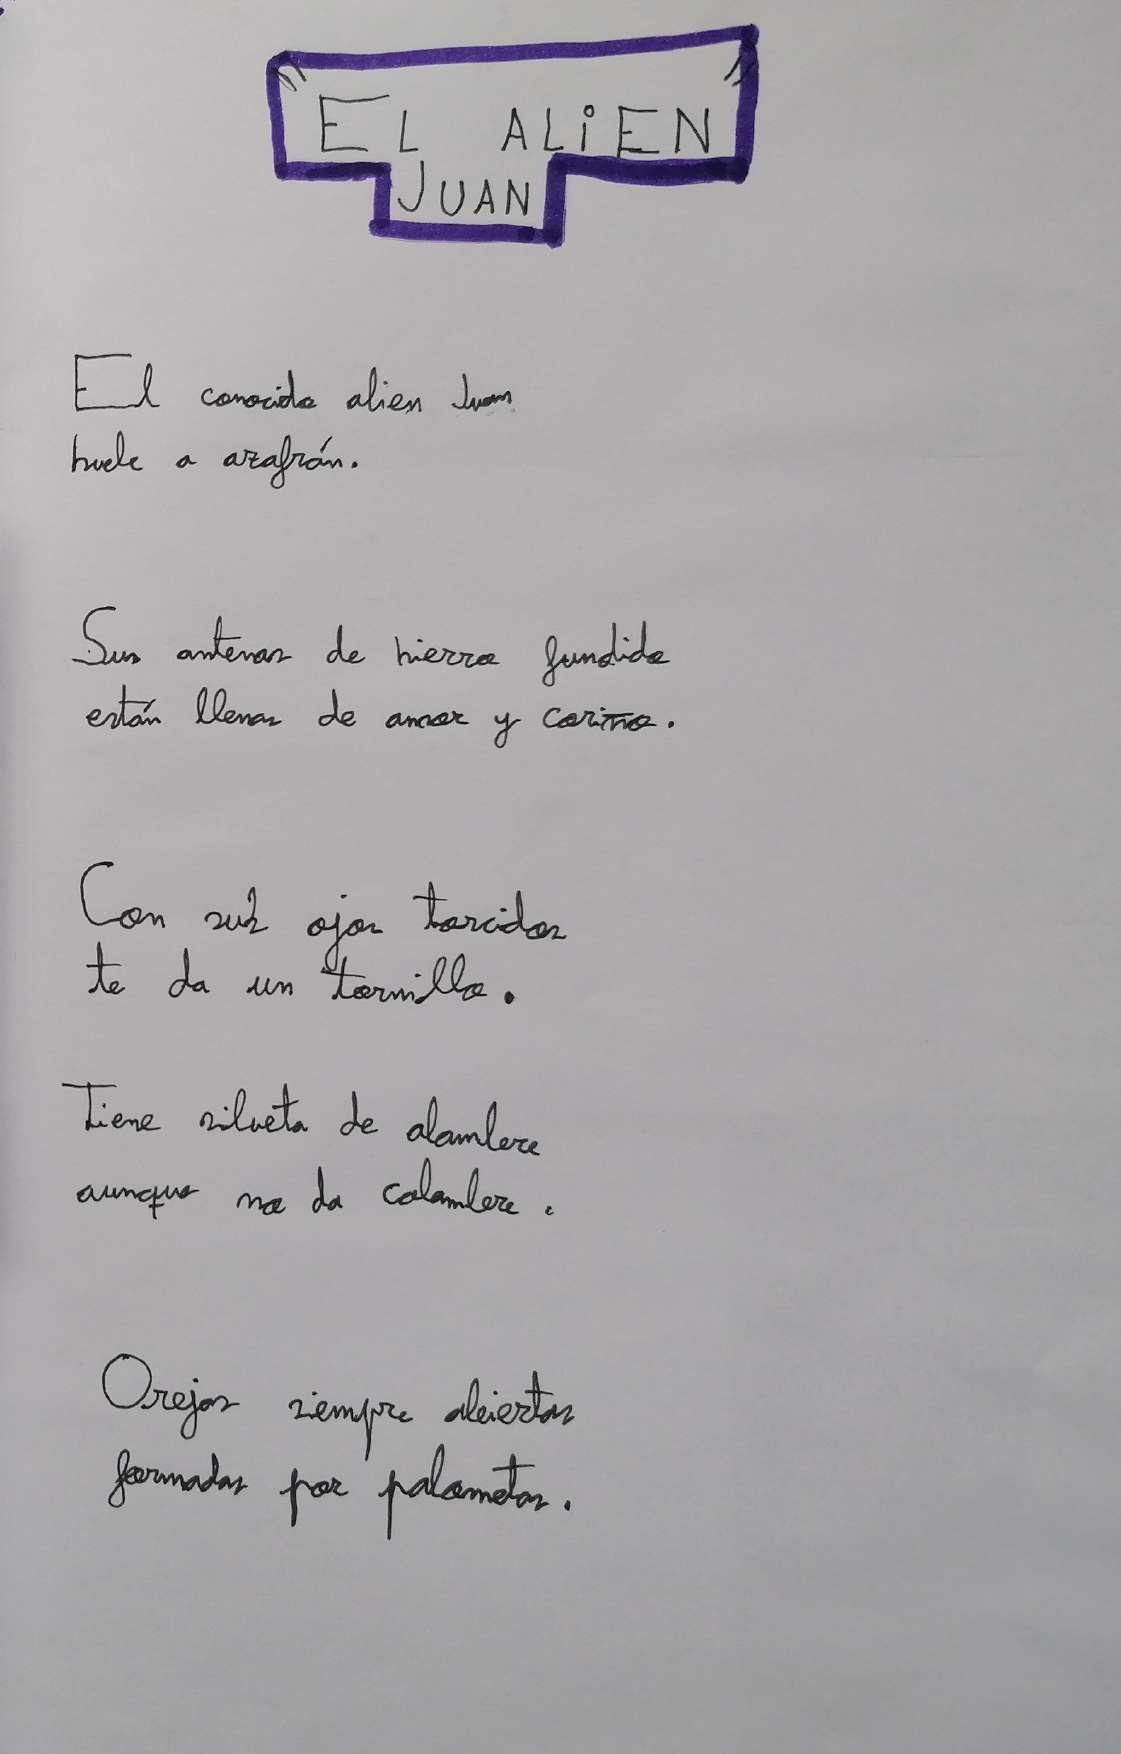 "EL ALiEN"
JUAN
El conocido alien Juan
huele a azafrán.
Sus antenas de hierro fundido
están llenas de amor y cariño.
Con sus ojos torcidos
te da un tornillo.
Tiene silueta de alambre
aunque no da calambre.
Orejas siempre abiertas
formadas por palometas.